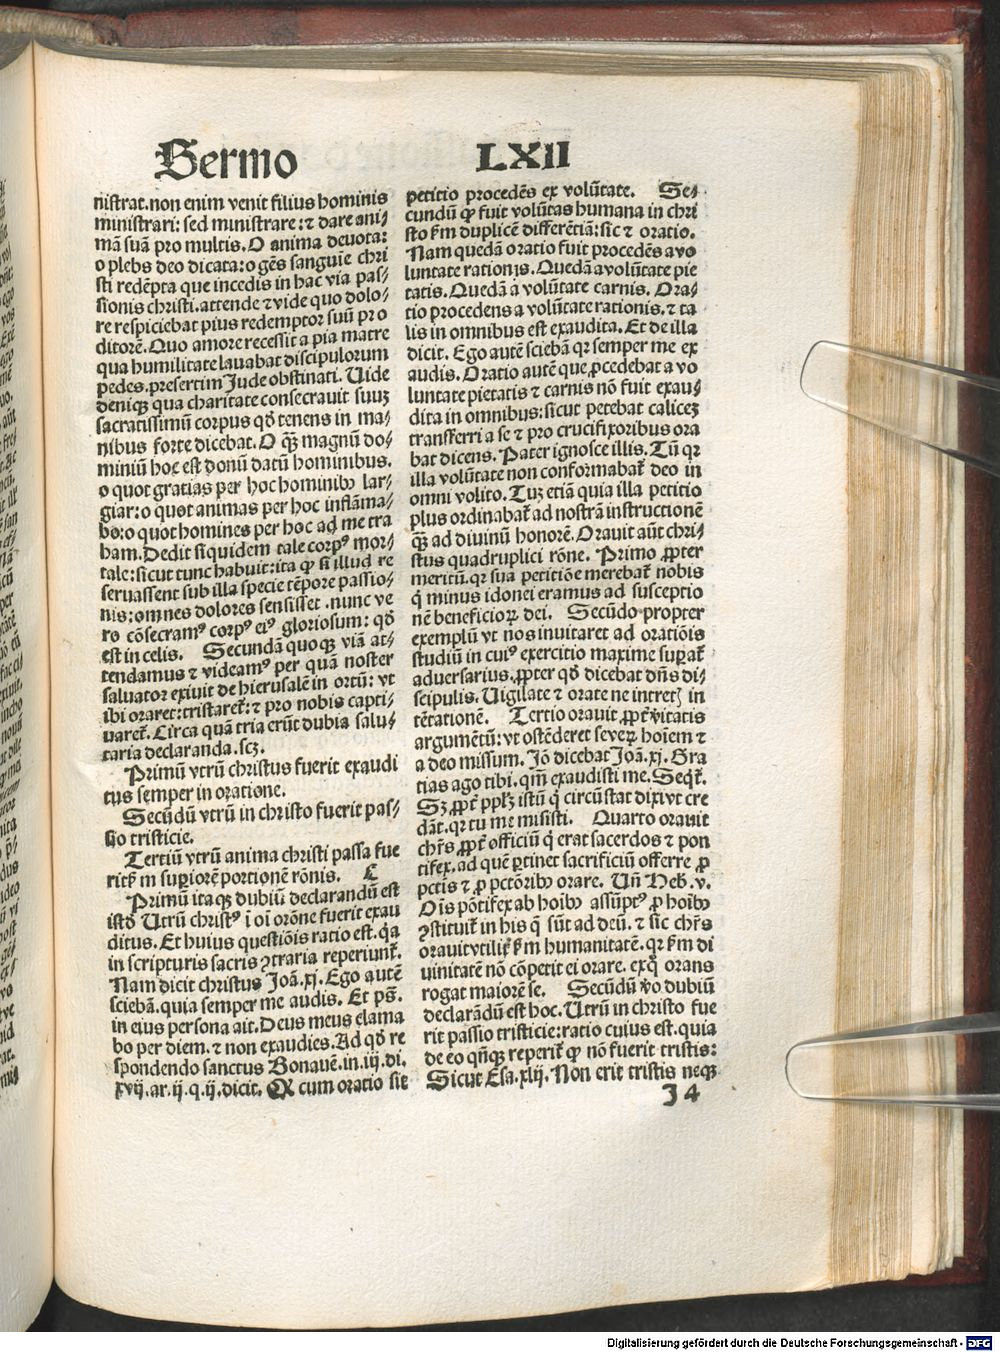 Sermo LXII
nistrat. non enim venit filius hominis
ministrari: sed ministrare: ⁊ dare ani-
mā suā pro multis. O anima deuota:
o plebs deo dicata: o gēs sanguīe chri
sti redēpta que incedis in hac via pas-
sionis christi. attende ⁊ vide quo dolo-
re respiciebat pius redemptor suū pro
ditorē. Quo amore recessit a pia matre
qua humilitate lauabat discipulorum
pedes. presertim Jude obstinati. Uide
deniqꝫ qua charitate consecrauit suuꝫ
sacratissimū corpus qđ tenens in ma-
nibus forte dicebat. O q̄ꝫ magnū do-
miniū hoc est donū datū hominibus.
o quot gratias per hoc hominibꝰ lar-
giar: o quot animas per hoc inflāma-
bo: o quot homines per hoc ad me tra
ham. Dedit siquidem tale corpꝰ mor-
tale: sicut tunc habuit: ita ꝙ si illud re
seruassent sub illa specie tēpore passio-
nis: omnes dolores sensisset. nunc ve
ro cōsecramꝰ corpꝰ eiꝰ gloriosum: qđ
est in celis. Secundā quoqꝫ viā at-
tendamus ⁊ videamꝰ per quā noster
saluator exiuit de hierusalē in ortū: vt
ibi oraret: tristaret᷑: ⁊ pro nobis capti-
uaret᷑. Circa quā tria erūt dubia salu-
taria declaranda. scꝫ.
Primū vtrū christus fuerit exaudi
tus semper in oratione.
Secūdū vtrū in christo fuerit pas-
sio tristicie.
Tertiū vtrū anima christi passa fue
rit ẜm suꝑiorē portionē rōnis. C
Primū itaqꝫ dubiū declarandū est
istđ Utrū christꝰ ī oī orōne fuerit exau
ditus. Et huius questiōis ratio est. qa
in scripturis sacris ꝯtraria reperiunt᷑.
Nam dicit christus Joā. xj. Ego autē
sciebā. quia semper me audis. Et pš.
in eius persona ait. Deus meus clama
bo per diem. ⁊ non exaudies. Ad qđ re
spondendo sanctus Bonauē. in. iij. di.
xvij. ar. ij. q. ij. dicit. Q cum oratio sit
petitio procedēs ex volūtate. Se-
cundū ꝙ fuit volūtas humana in chri
sto ẜm duplicē differētiā: sic ⁊ oratio.
Nam quedā oratio fuit procedēs a vo
luntate rationis. Quedā a volūtate pie
tatis. Quedā a volūtate carnis. Ora-
tio procedens a voluntate rationis. ⁊ ta
lis in omnibus est exaudita. Et de illa
dicit. Ego autē sciebā qꝛ semper me ex
audis. Oratio autē que ꝓcedebat a vo
luntate pietatis ⁊ carnis nō fuit exau-
dita in omnibus: sicut petebat caliceꝫ
transferri a se ⁊ pro crucifixoribus ora
bat dicens. Pater ignosce illis. Tū qꝛ
illa volūtate non conformabat᷑ deo in
omni volito. Tuꝫ etiā quia illa petitio
plus ordinabat᷑ ad nostrā instructionē
q̄ꝫ ad diuinū honorē. Orauit aūt chri-
stus quadruplici rōne. Primo ꝓpter
meritū. qꝛ sua petitiōe merebat᷑ nobis
q̄ minus idonei eramus ad susceptio
nē beneficioꝝ dei. Secūdo propter
exemplū vt nos inuitaret ad oratiōis
studiū in cuiꝰ exercitio maxime suꝑat᷑
aduersarius. ꝓpter qđ dicebat dn̄s di-
scipulis. Uigilate ⁊ orate ne intretꝭ in
tētationē. Tertio orauit ꝓpt̄ v̄itatis
argumētū: vt ostēderet se veꝝ hoīem ⁊
a deo missum. Jō dicebat Joā. xj. Gra
tias ago tibi. qm̄ exaudisti me. Seqt᷑.
Sꝫ ꝓpt̄ pplꝫ istū q̄ circūstat dixi vt cre
dāt. qꝛ tu me misisti. Quarto orauit
chr̄s ꝓpt̄ officiū q̄ erat sacerdos ⁊ pon
tifex. ad quē ꝑtinet sacrificiū offerre ꝓ
pctīs ⁊ ꝓ pctōribꝰ orare. Uñ Heb. v.
Oīs pōtifex ab hoībꝰ assūptꝰ ꝓ hoībꝰ
ꝯstituit᷑ in his q̄ sūt ad deū. ⁊ sic chr̄s
orauit vtiliꝫ ẜm humanitatē. qꝛ ẜm di
uinitatē nō cōpetit ei orare. exq̄ orans
rogat maiorē se. Secūdū v̄o dubiū
declarādū est hoc. Utrū in christo fue
rit passio tristicie: ratio cuius est. quia
de eo qn̄qꝫ reperit᷑ ꝙ nō fuerit tristis:
Sicut Esa. xlij. Non erit tristis neqꝫ
J 4
Digitalisierung gefördert durch die Deutsche Forschungsgemeinschaft - DFG